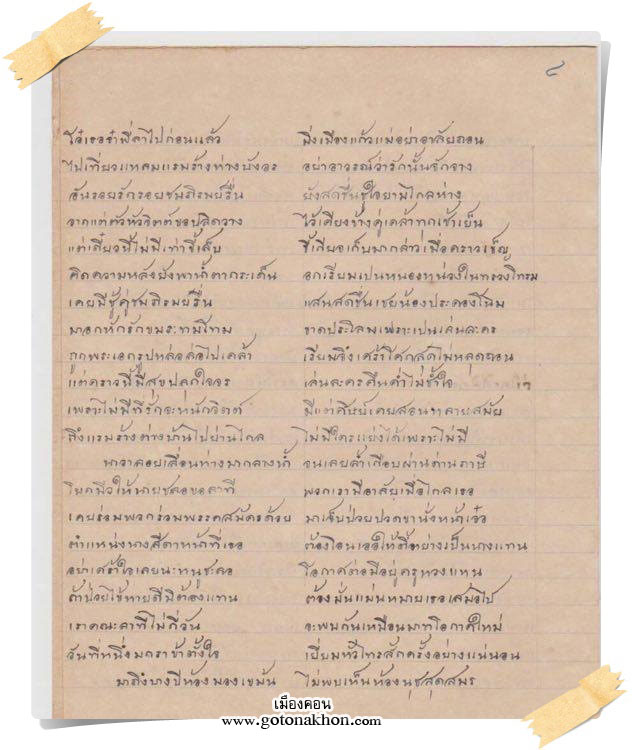 ๔
โอ้เธอจ๋าพี่ลาไปก่อนแล้ว มิ่งเมืองแก้วแม่อย่าอาลัยถอน
ไปเที่ยวแหลมแรมร้างห่างบังอร อย่าอาวรณ์ว่ารักนั้นจักจาง
อันรอยรักรอยชมภิรมย์รื่น ยังสดชื่นชูใจยามไกลห่าง
จากแต่ตัวหัวจิตต์ขอปลิดวาง ไว้เคียงข้างคู่เคล้าทุกเช้าเย็น
แต่เดี๋ยวนี้ไม่มีเท่าขี้เล็บ ขี้เกียจเก็บมากล่าวเมื่อคราวเข็ญ
คิดความหลังยังพาน้ำตากระเด็น อกเรียมเปนหนองหน่วงในทรวงโทรม
เคยมีชู้คู่ชมภิรมย์รื่น แสนสดชื่นเชยน้องประคองโฉม
มาอกหักรักขมระทมโทม ขาดประโลมเพราะเปนเล่นละคร
ถูกพระเอกรูปหล่อล่อไปเคล้า เรียมจึงเศร้าโศกสุดไม่หลุดถอน
แต่คราวนี้มีสุขปลุกใจจร เล่นละครคืนค่ำไม่ช้ำใจ
เพราะไม่มีที่รักจะหนักจิตต์ มีแต่ศิษย์เคยสอนหลายสมัย
ถึงแรมร้างต่างบ้านไปย่านไกล ไม่มีใครแย่งได้เพราะไม่มี
นาวาลอยเลื่อนทางมากลางน้ำ จนเลยล้ำเกือบผ่านด่านภาษี
โบกมือให้นายชลอขอลาที พวกเรามีอาลัยเมื่อไกลเธอ
เคยร่วมพวกร่วมพรรคสมัครด้วย มาเจ็บป่วยปวดขานั่งหน้าเอ๋อ
ตำแหน่งนางสีดาหน้าที่เธอ ต้องโอนเออให้ชื่ออย่างเป็นนางแทน
อย่าเศร้าใจเลยนะหนูชลอ โอกาศต่อมีอยู่ครูหวงแหน
ถ้าป่วยไข้หายดีมิต้องแทน ต้องมั่นแม่นหมายเธอเสมอไป
เราคณะลาที่ไม่กี่วัน จะพบกันเหมือนมาทโอกาศใหม่
วันที่หนึ่งมกราข้าตั้งใจ เยี่ยมหัวไทรสักครั้งอย่างแน่นอน
มาถึงบางปีห้องมองเขม้น ไม่พบเห็นห้องนุชสุดสมร
เมืองคอน
www.gotonakhon.com